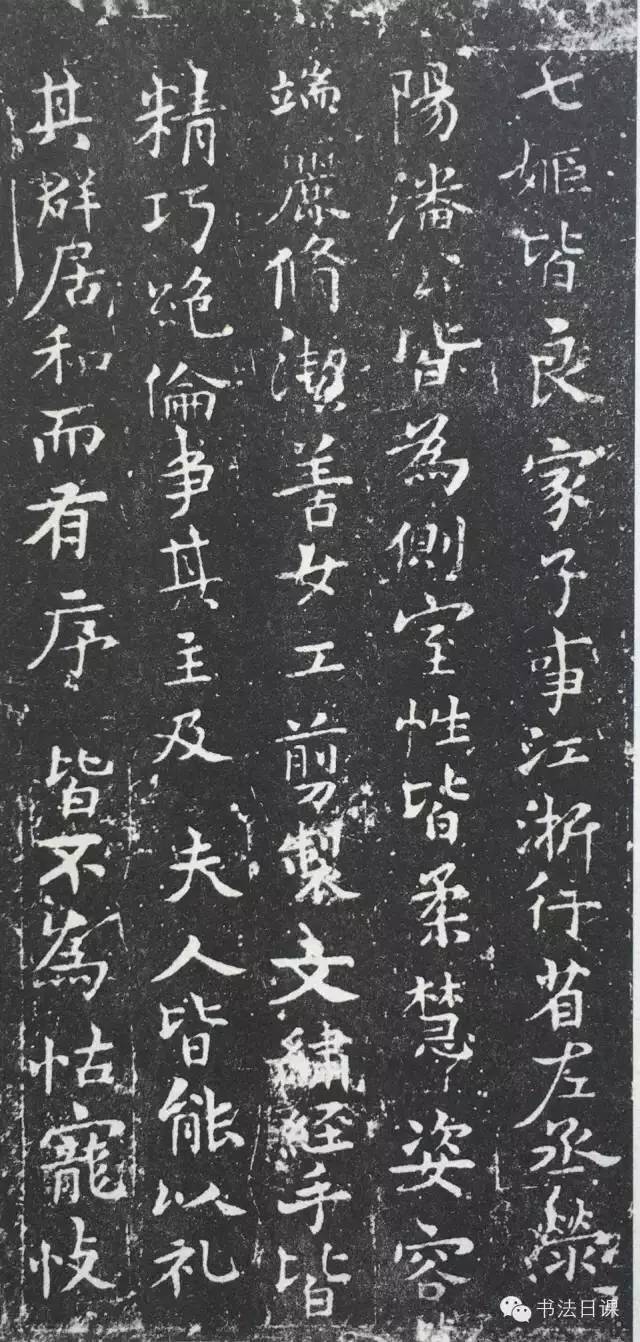 七姬皆良家子事江浙行省左丞滎
陽潘公皆為側室性皆柔慧姿容
端麗脩潔善女工剪製文繡經手皆
精巧絶倫事其主及夫人皆能以礼
其群居和而有序皆不為怙寵忮
书法日课